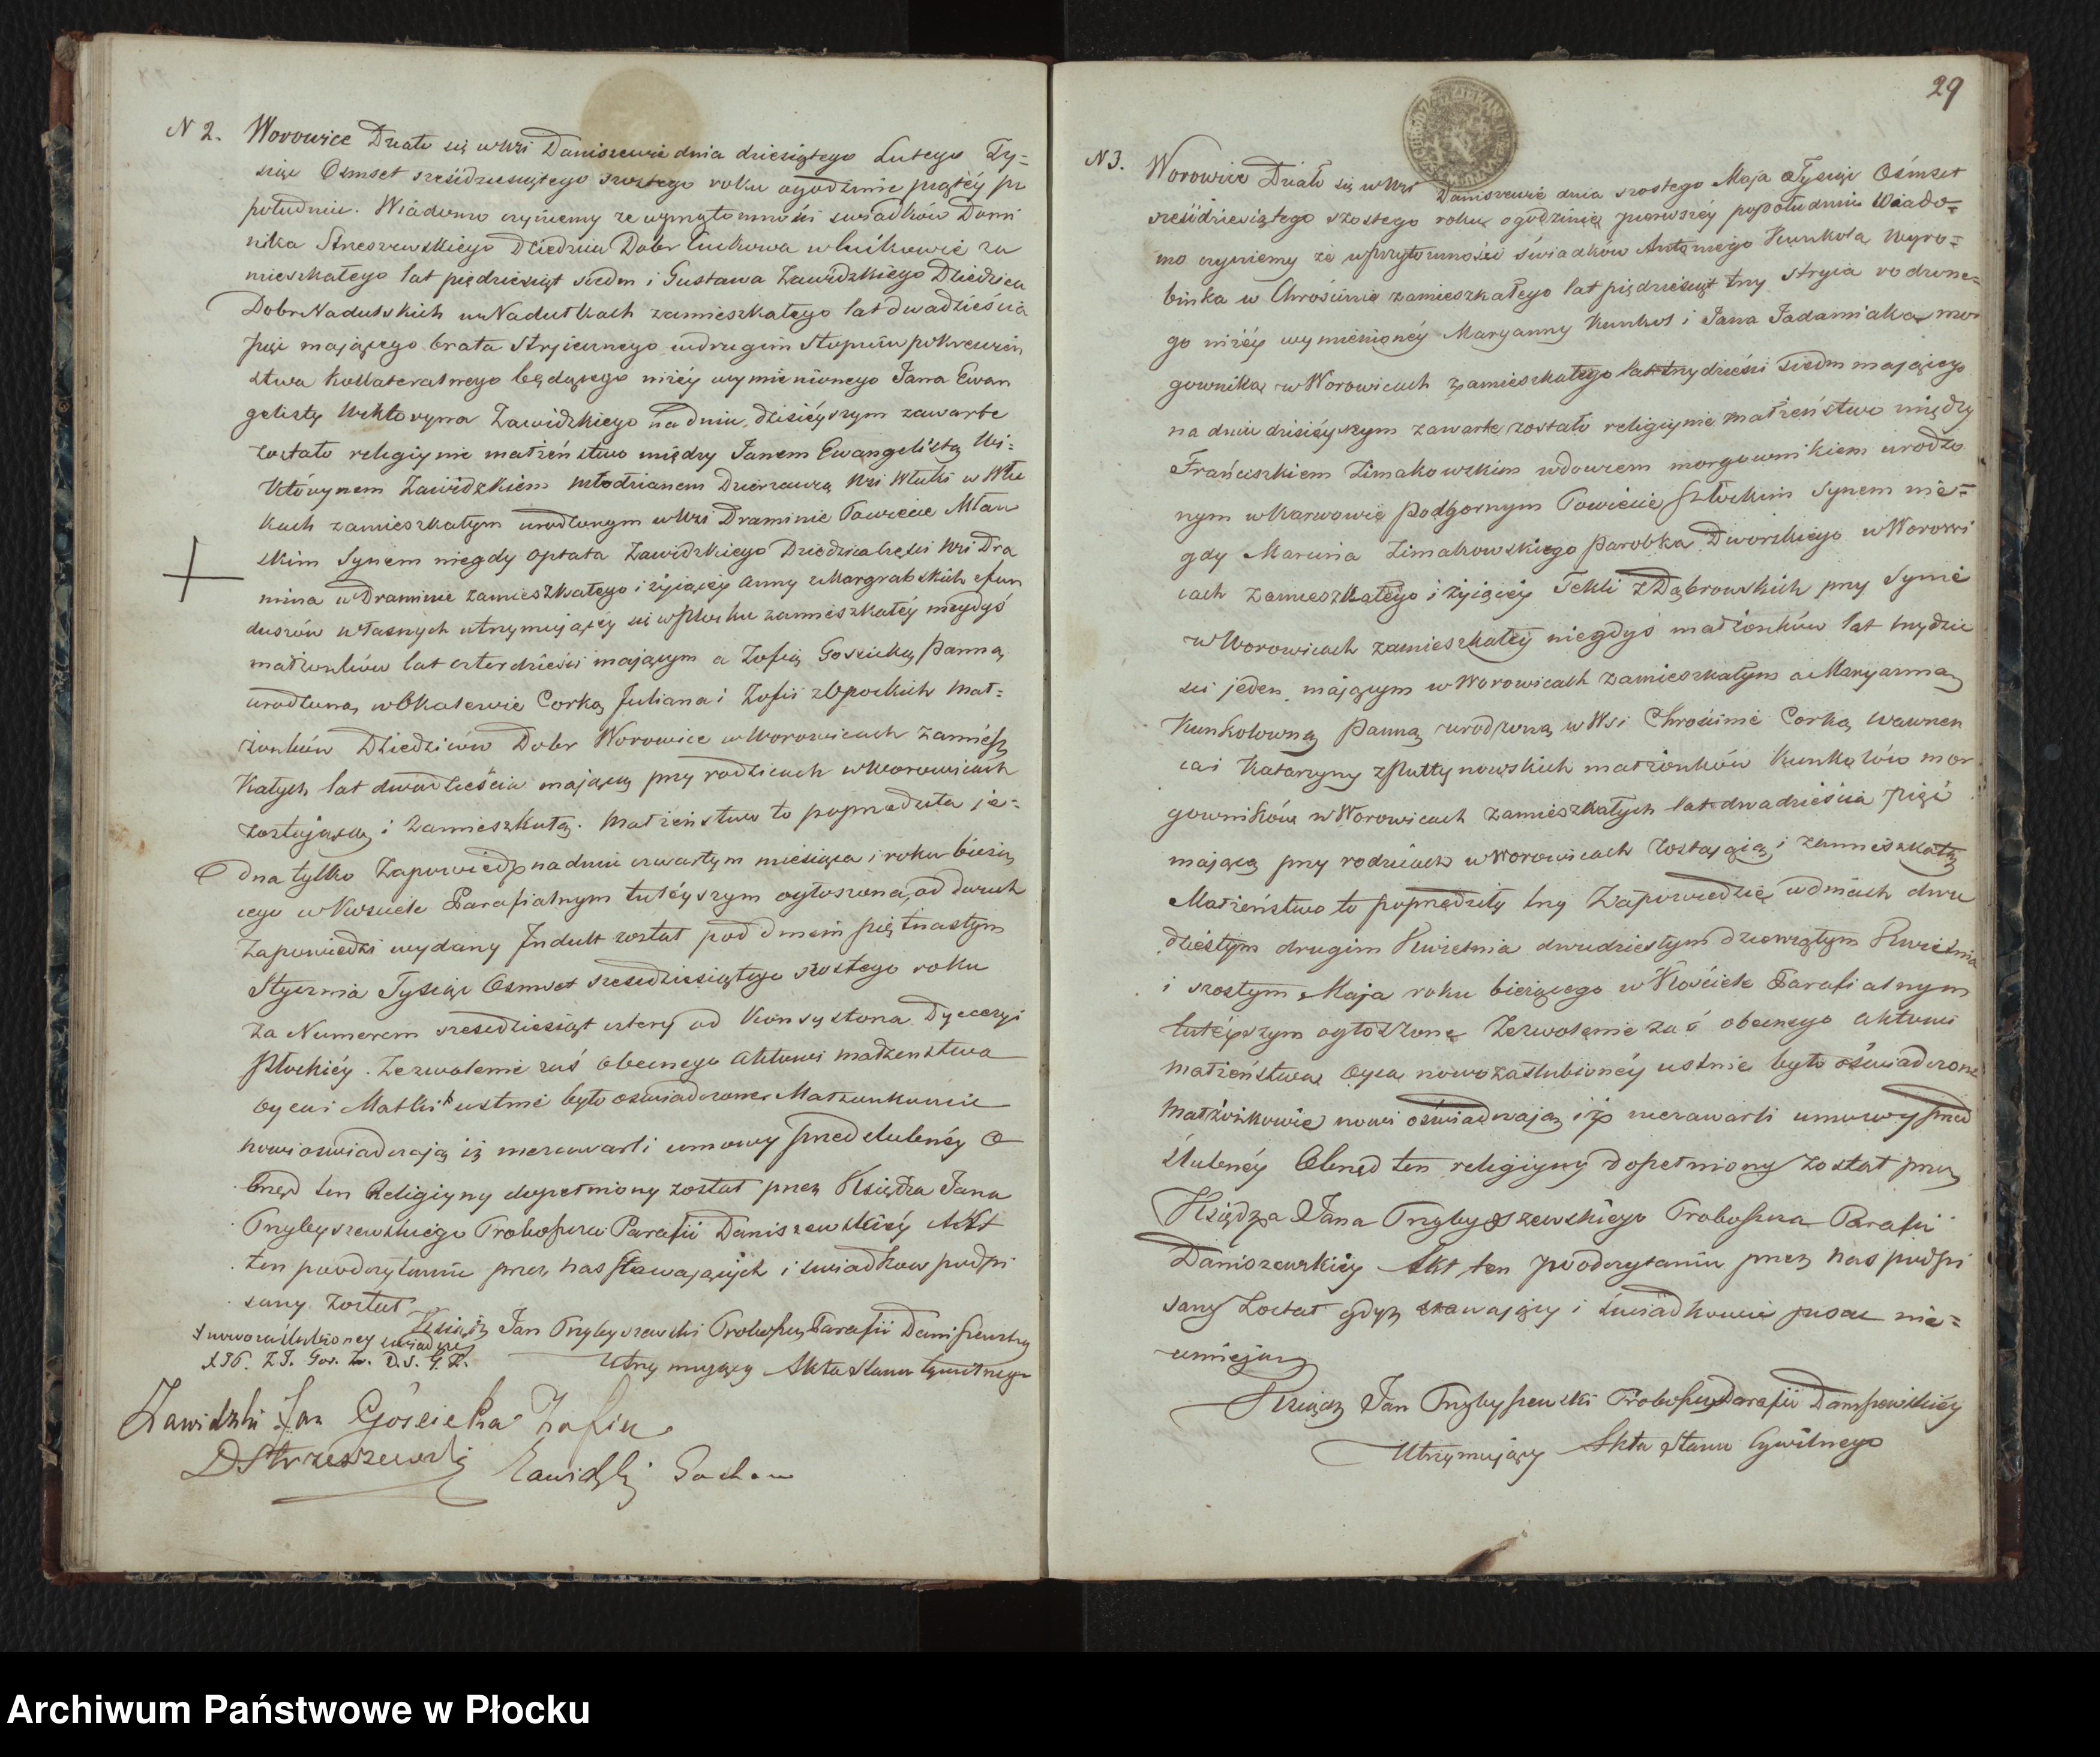 N 2. Worowice Działo się w Wsi Daniszewie dnia dziesiątego Lutego Ty=
siąc Ośmset sześćdziesiątego szostego roku o godzinie piątéy po
południu. Wiadomo czyniemy ze w przytomności swiadków Domi
nika Strzeszewskiego Dziedzica Dobr w zа
mieszkałego lat pięćdziesiąt siedm i Gustawa Zawidzkiego Dziedzica
Dobr Nadułskich w Nadułkach zamieszkałego lat dwadzieścia
pięć mającego brata stryiecznego w drugim stopniu pokrewień
stwa kollateralnego będącego niżéy wymienionego Jana Ewan
gelisty Wiktoryna Zawidzkiego na dniu dzisiéyszym zawarte
zostało religiynie małżeństwo między Janem Ewangelistą Wi=
którynem Zawidzkiem Młodzianem Dzierzawcą Wsi Włuki w Włu
kach zamieszkałym urodzonym w Wsi Draminie Powiecie Mław
skim Synem niegdy Optata Zawidzkiego Dziedzica Części Wsi Dra
mina w Draminie zamieszkałego i żyiącéy Anny z Margrabskich z fun
duszów własnych utrzymującéy się w Płocku zamieszkałéy niegdyś
małżonków lat czterdzieści mającym a Zofią Gościcką Panną
urodzoną w Okalewie Corką Juliana i Zofii z małż=
żonków Dziedziców Dobr Worowice w Worowicach zamiesz
kałych lat dwadzieścia mającą przy rodzicach w Worowicach
zostającą i zamieszkałą. Małżeństwo to poprzedziła je=
dna tylko Zapowiedź na dniu czwartym miesiąca i roku bieżą
cego w Kościele Parafialnym tutéyszym ogłoszona, od dwuch
zapowiedzi wydany Jndult został pod dniem piętnastym
Stycznia Tysiąc Ośmset sześćdziesiątego szostego roku
za Numerem sześćdziesiąt cztery od Konsystorza Dyecezyi
Płockiéy. Zezwolenie zaś obecnego Aktowi małżeństwa
oyca i Matki + ustnie było oświadczone. Małżonkowie
nowi oświadczają iż niezawarli umowy przedślubnéy O
brzęd ten Religiyny dopełniony został przez Księdza Jana
Przybyszewskiego Proboszcza Parafii Daniszewskiéy Akt
ten po odczytaniu przez nas stawających i świadkow podpi
sany został
+ nowozaślubioney
Ksiądz Jan Przybyszewski Proboszcz Parafii Daniszewskiey
Utrzymujący Akta Stanu Cywilnego
Zawidzki Jan Gościcka Zofia
D Strzeszewski Zawidzki
29
N 3. Worowice Działo się w Wsi Daniszewie dnia szostego Maja Tysiąc Ośmset
sześćdziesiątego szostego roku o godzinie pierwszéy po południu Wiado=
mo czyniemy że w przytomności świadków Antoniego Kunkola Wyro=
bnika w Chrościnie zamieszkałego lat pięćdziesiąt trzy Stryia rodzone=
go niżéy wymienionéy Maryanny Kunkol i Jana Jadamiaka mor
gownika w Worowicach zamieszkałego lat trzydzieści siedm mającego
na dniu dzisiéyszym zawarte zostało religiynie małżeństwo między
Franciszkiem Zimakowskim wdowcem morgownikiem urodzo
nym w Karwowie Podgornym Powiecie Płockim Synem nie=
gdy Marcina Zimakowskiego Parobka Dworskiego w Worowi
cach zamieszkałego i żyiącéy Tekli z Dąbrowskich przy Synie
w Worowicach zamieszkałéy niegdyś małżonków lat trzydzie
ści jeden mającym w Worowicach zamieszkałym a Maryanną
Kunkolowną Panną urodzoną w Wsi Chrościnie Corką Wawrzeń
ca i Katarzyny z małżonków Kunkolów mor
gowników w Worowicach zamieszkałych lat dwadzieścia pięć
mającą przy rodzicach w Worowicach zostającą i zamieszkałą
Małżeństwo to poprzedziły trzy Zapowiedzie w dniach dwu
dziestym drugim Kwietnia dwudziestym dziewiątym Kwietnia
i szostym Maja roku bieżącego w Kościele Parafialnym
tutéyszym ogłoszone Zezwolenie zaś obecnego Aktowi
małżeństwa Oyca nowozaślubionéy ustnie było oświadczone
Małżonkowie nowi oświadczają iż niezawarli umowy przed
ślubnéy Obrzęd ten religiyny dopełniony został przez
Księdza Jana Przybyszewskiego Proboszcza Parafii
Daniszewskiéy Akt ten po odczytaniu przez nas podpi
sany został gdyż stawający i świadkowie pisać nie=
umieją
Ksiądz Jan Przybyszewski Proboszcz Parafii Daniszewskiéy
Utrzymujący Akta Stanu Cywilnego
Archiwum Państwowe w Płocku